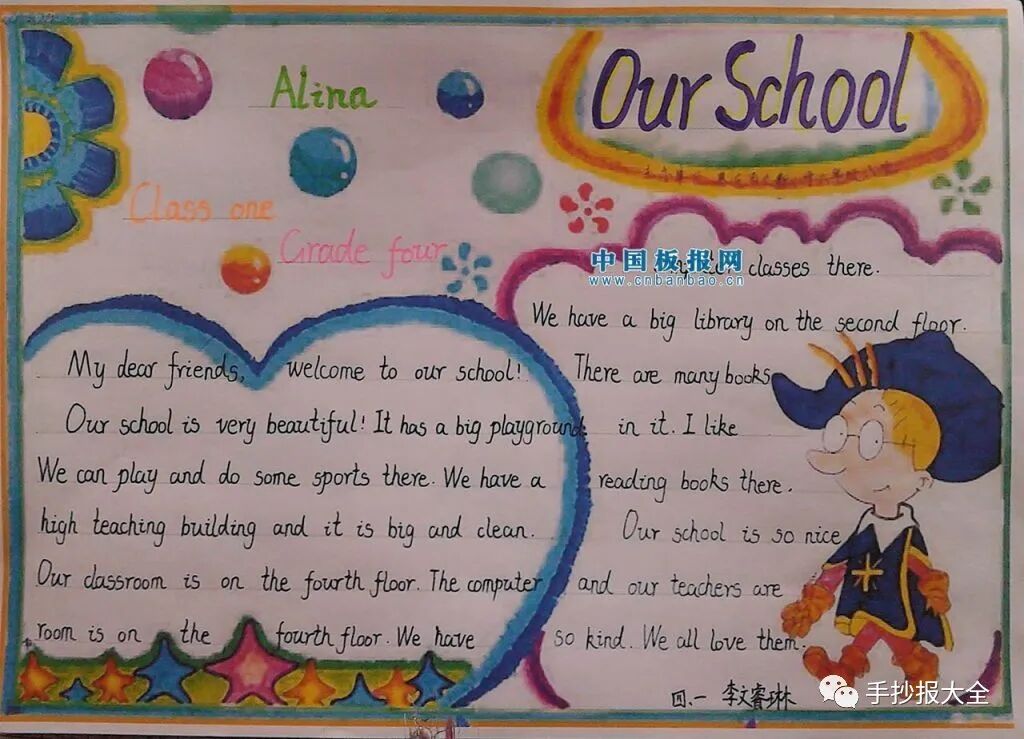 Alina
Our School
Class one
Grade four
中国板报网
www.cnbanbao.cn
My dear friends, welcome to our school!
Our school is very beautiful! It has a big playground.
We can play and do some sports there. We have a
high teaching building and it is big and clean.
Our classroom is on the fourth floor. The computer
room is on the fourth floor. We have
classes there.
We have a big library on the second floor.
There are many books
in it. I like
reading books there.
Our school is so nice
and our teachers are
so kind. We all love them.
四.一 李文睿琳
手抄报大全